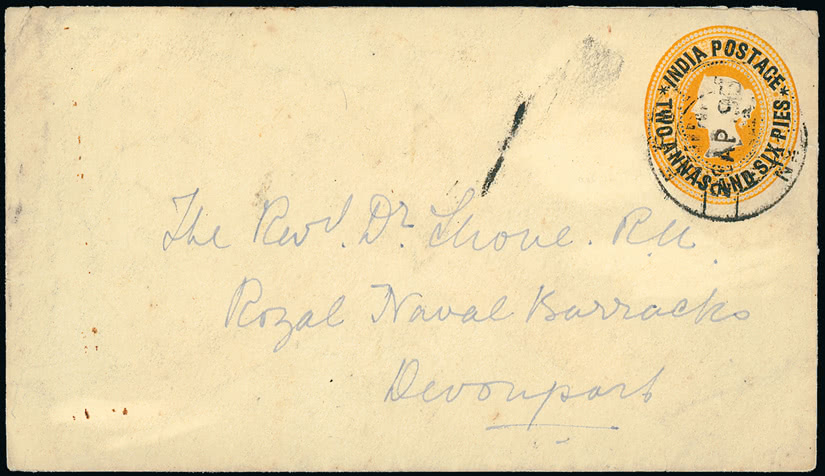 * INDIA POSTAGE *
TWO ANNAS AND SIX PIES
AP
The Revd. Dr. Shone. R.N.
Royal Naval Barracks
Devonport